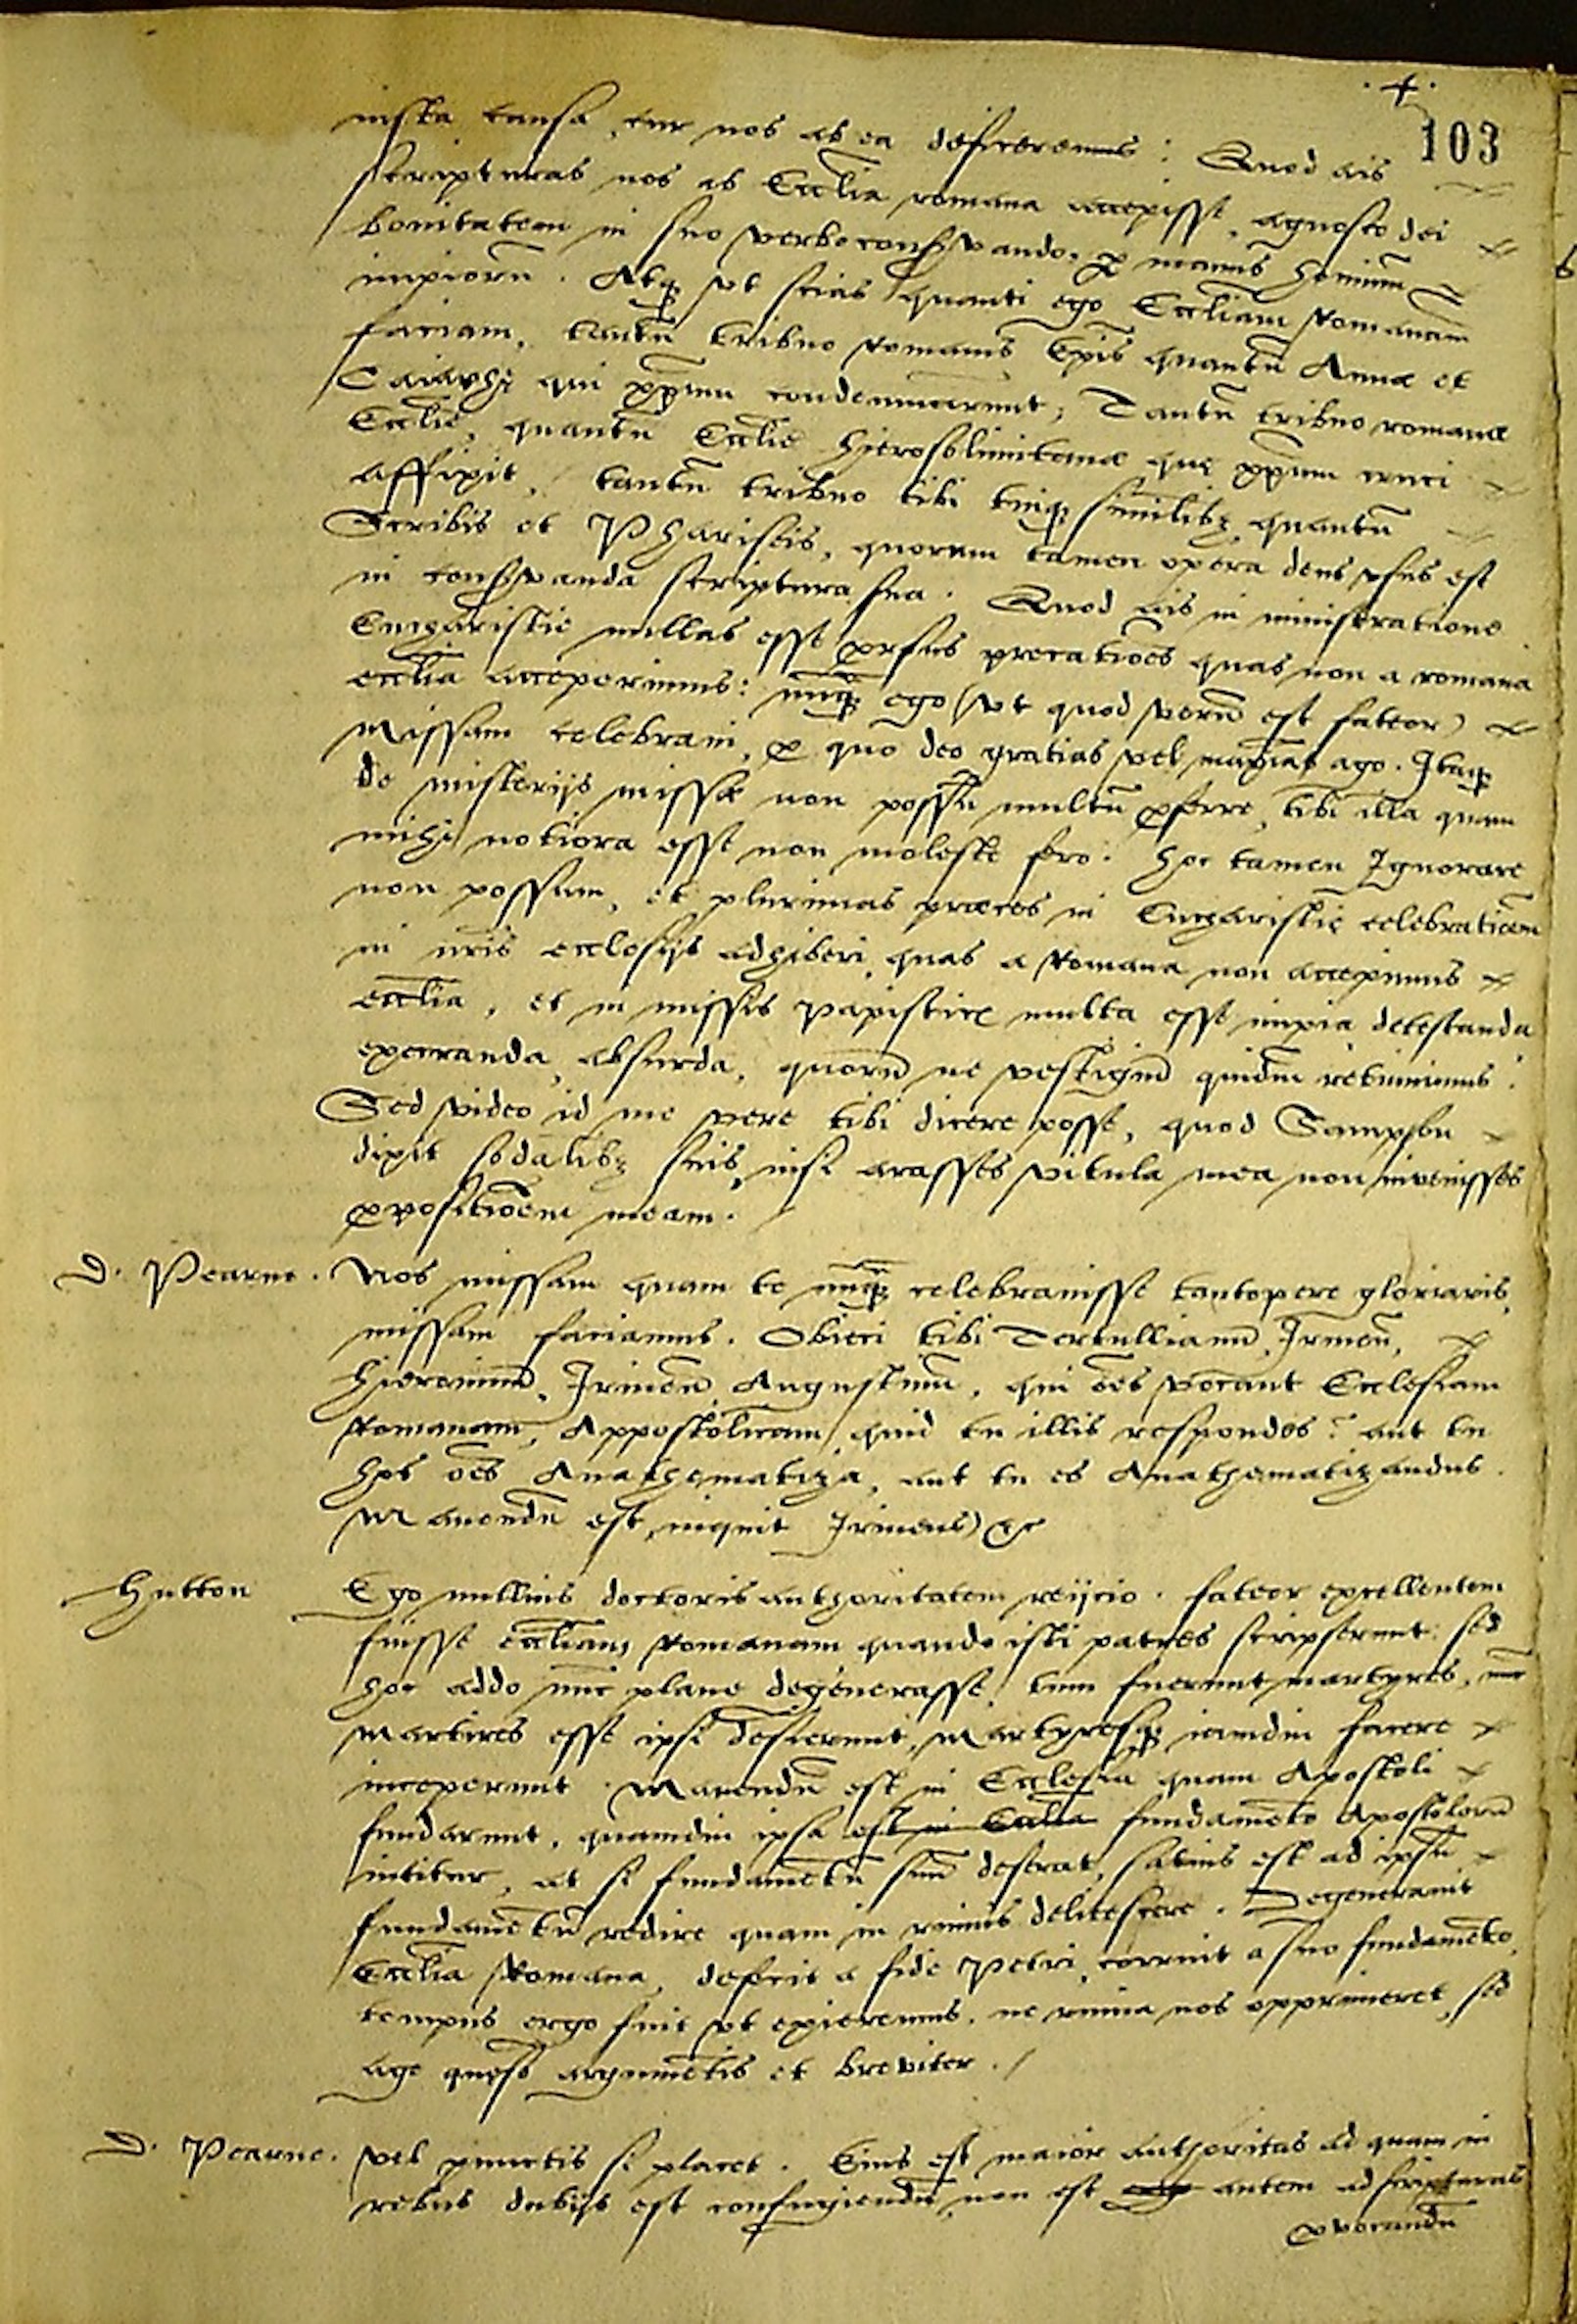 +
103
iusta causa, cur nos ab ea deficeremus: Quod ais
scripturas nos ab Ecclīa romana accepisse, agnosco dei
bonitatem in suo verbo consʼvando, ꝑ manus hominum
impiorū. Atqꝫ vt scias quanti ego Eccliam Romanam
faciam, tantū tribuo romanis Epīs quantū Annæ et
Caiaphę qui xp̄um condemnarunt, Tantū tribuo romanæ
Ecclīe, quantū Ecclīe hierosolimitanæ quę xp̄um cruci
affixit, tantū tribuo tibi tuiqꝫ similibꝫ quantū
Scribis et Phariseis, quorum tamen opera deus vsus est
in consʼvanda scriptura sua. Quod ais in ministratione
Eucharistie nullas esse prorsus precatiōes quas non a romana
ecclīa acceperimus: nūqꝫ ego (vt quod verū est fatear)
Missam celebraui, ꝓ quo deo gratias vel maximas ago. Itaqꝫ
de misterijs missæ non possū multū ꝓferre, tibi illa quam
mihi notiora esse non moleste fero. hoc tamen Ignorare
non possum, et plurimas præces in Eucharistię celebratiōem
in nr̄is ecclesijs adhiberi, quas a Romana non accepimus
ecclīa, et in missis papisticis multa esse impia detestanda
execranda absurda, quorū ne vestigiū quidem retinuimus.
Sed video id me vere tibi dicere posse, quod Sampson
dixit sodalibꝫ suis, nisi arasses vitula mea non inuenisses
ꝓpositiōem meam.
D. Pearne. Nos missam quam te nūqꝫ celebrauisse tantopere gloriaris,
missam faciamus. Obieci tibi Tertullianū, Irineū,
hieronimū, Irineū Augustinū, qui oēs vocant Ecclesiam
Romanam Appostolicam, quid tu illis respondes? aut tu
hos oēs Anathematiza, aut tu es Anathematizandus.
Manendū est, inquit Irineus) &c
Hutton Ego nullius doctoris authoritatem reijcio. fateor excellentem
fuisse eccliam Romanam quando isti patres scripserunt: sed
hoc addo nūc plane degenerasse, tum fuerunt martyres, nūc
martires esse ipsi desierunt, Martyresqꝫ iamdiu facere
inceperunt. Manendū est in Ecclesia quam Apostoli
fundarunt, quamdiu ipsa est in Ecclīa fundamēto Apostolorū
nititur, at si fundamētū suū deserat, satius est ad ipsū
fundamētū redire quam in ruinis delitescere. Degenerauit
Ecclīa Romana, defecit a fide Petri, corruit a suo fundamēto,
tempus ergo fuit vt exieremus, ne ruina nos opprimeret, sed
age quęso argumētis et breviter.
D. Pearne. Vel punctis si placet. Eius est maior authoritas ad quam in
rebus dubijs est confugiendū, non est autem ad scripturas
ꝓvocandū